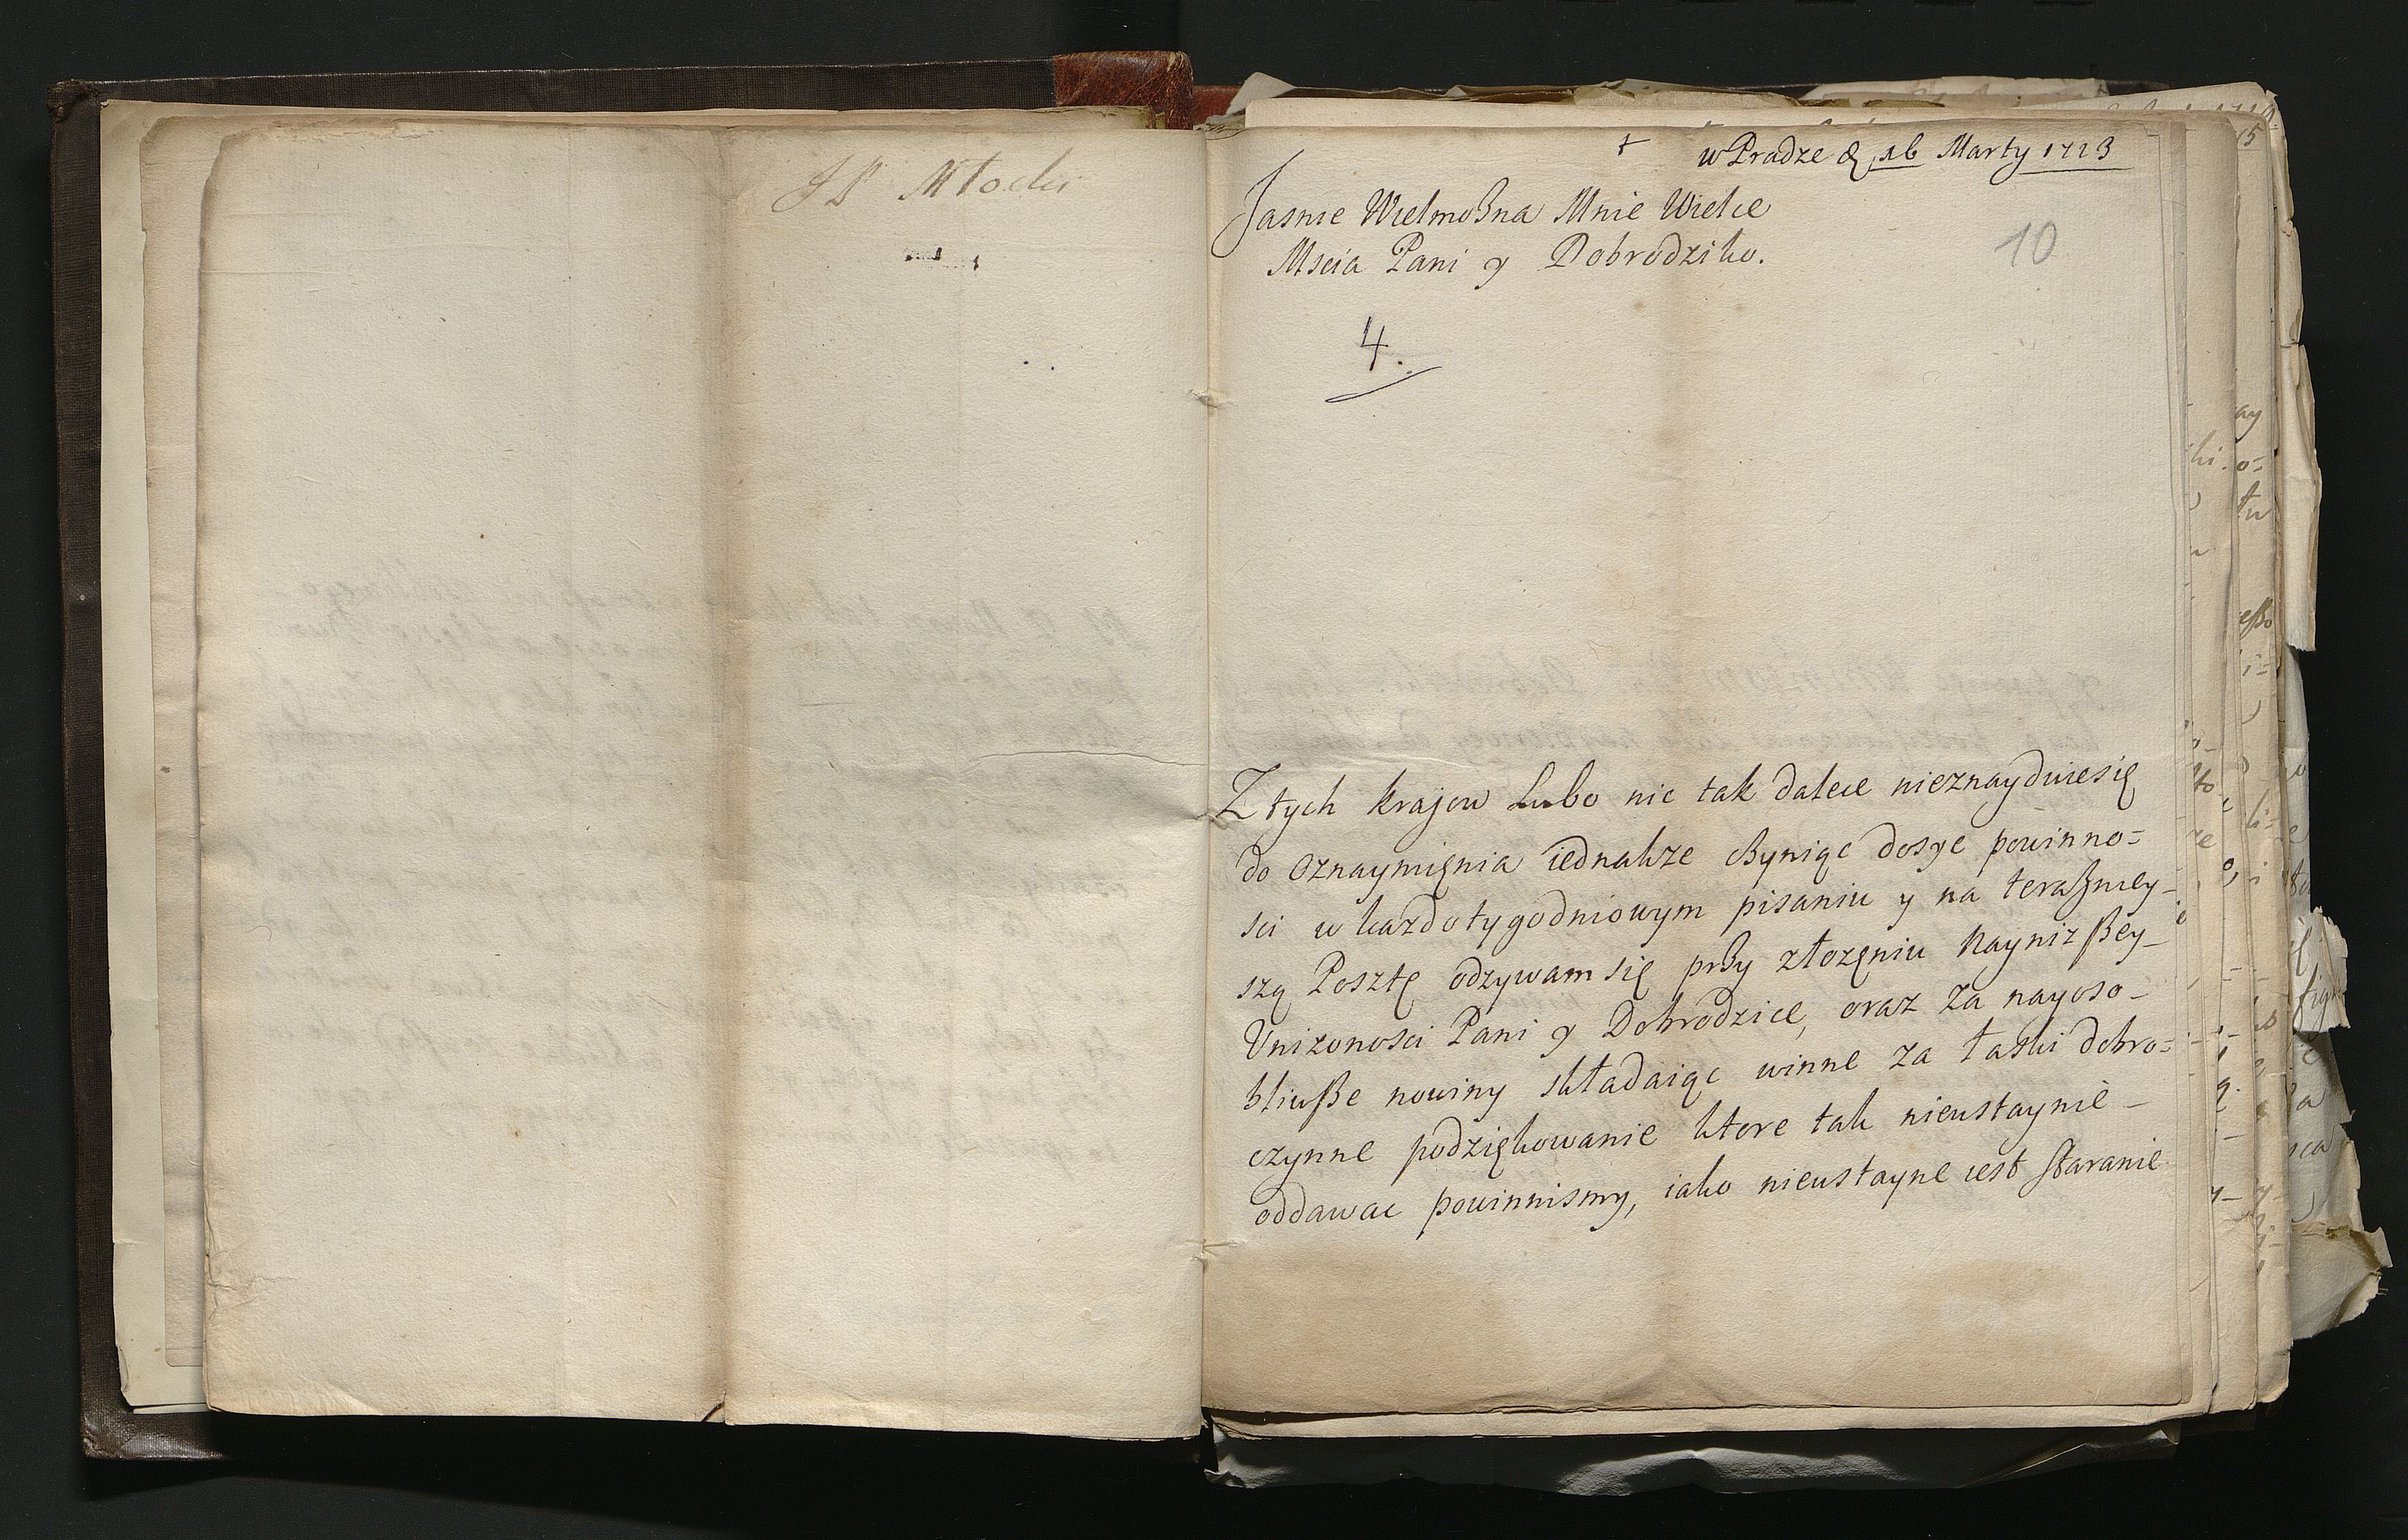 JP Młocki
+ w Pradze d 16 Marty 1723
Jasnie Wielmożna Mnie Wielce
Mscia Pani y Dobrodziko.
10
4.
Z tych krajow Lubo nic tak dalece nieznayduiesię
do oznaymięnia iednakze czyniąc dosyc powinno=
sci w kazdotygodniowym pisaniu y na terazniey-
szą Posztę odzywam się przy złozęniu Nayniższey-
Unizonosci Pani y Dobrodzice, oraz za nayoso-
bliwsze nowiny składaiąc winne za łaski dobro=
czynne podziękowanie ktore tak nieustaynie-
oddawac powinnismy, iako nieustayne iest staranie